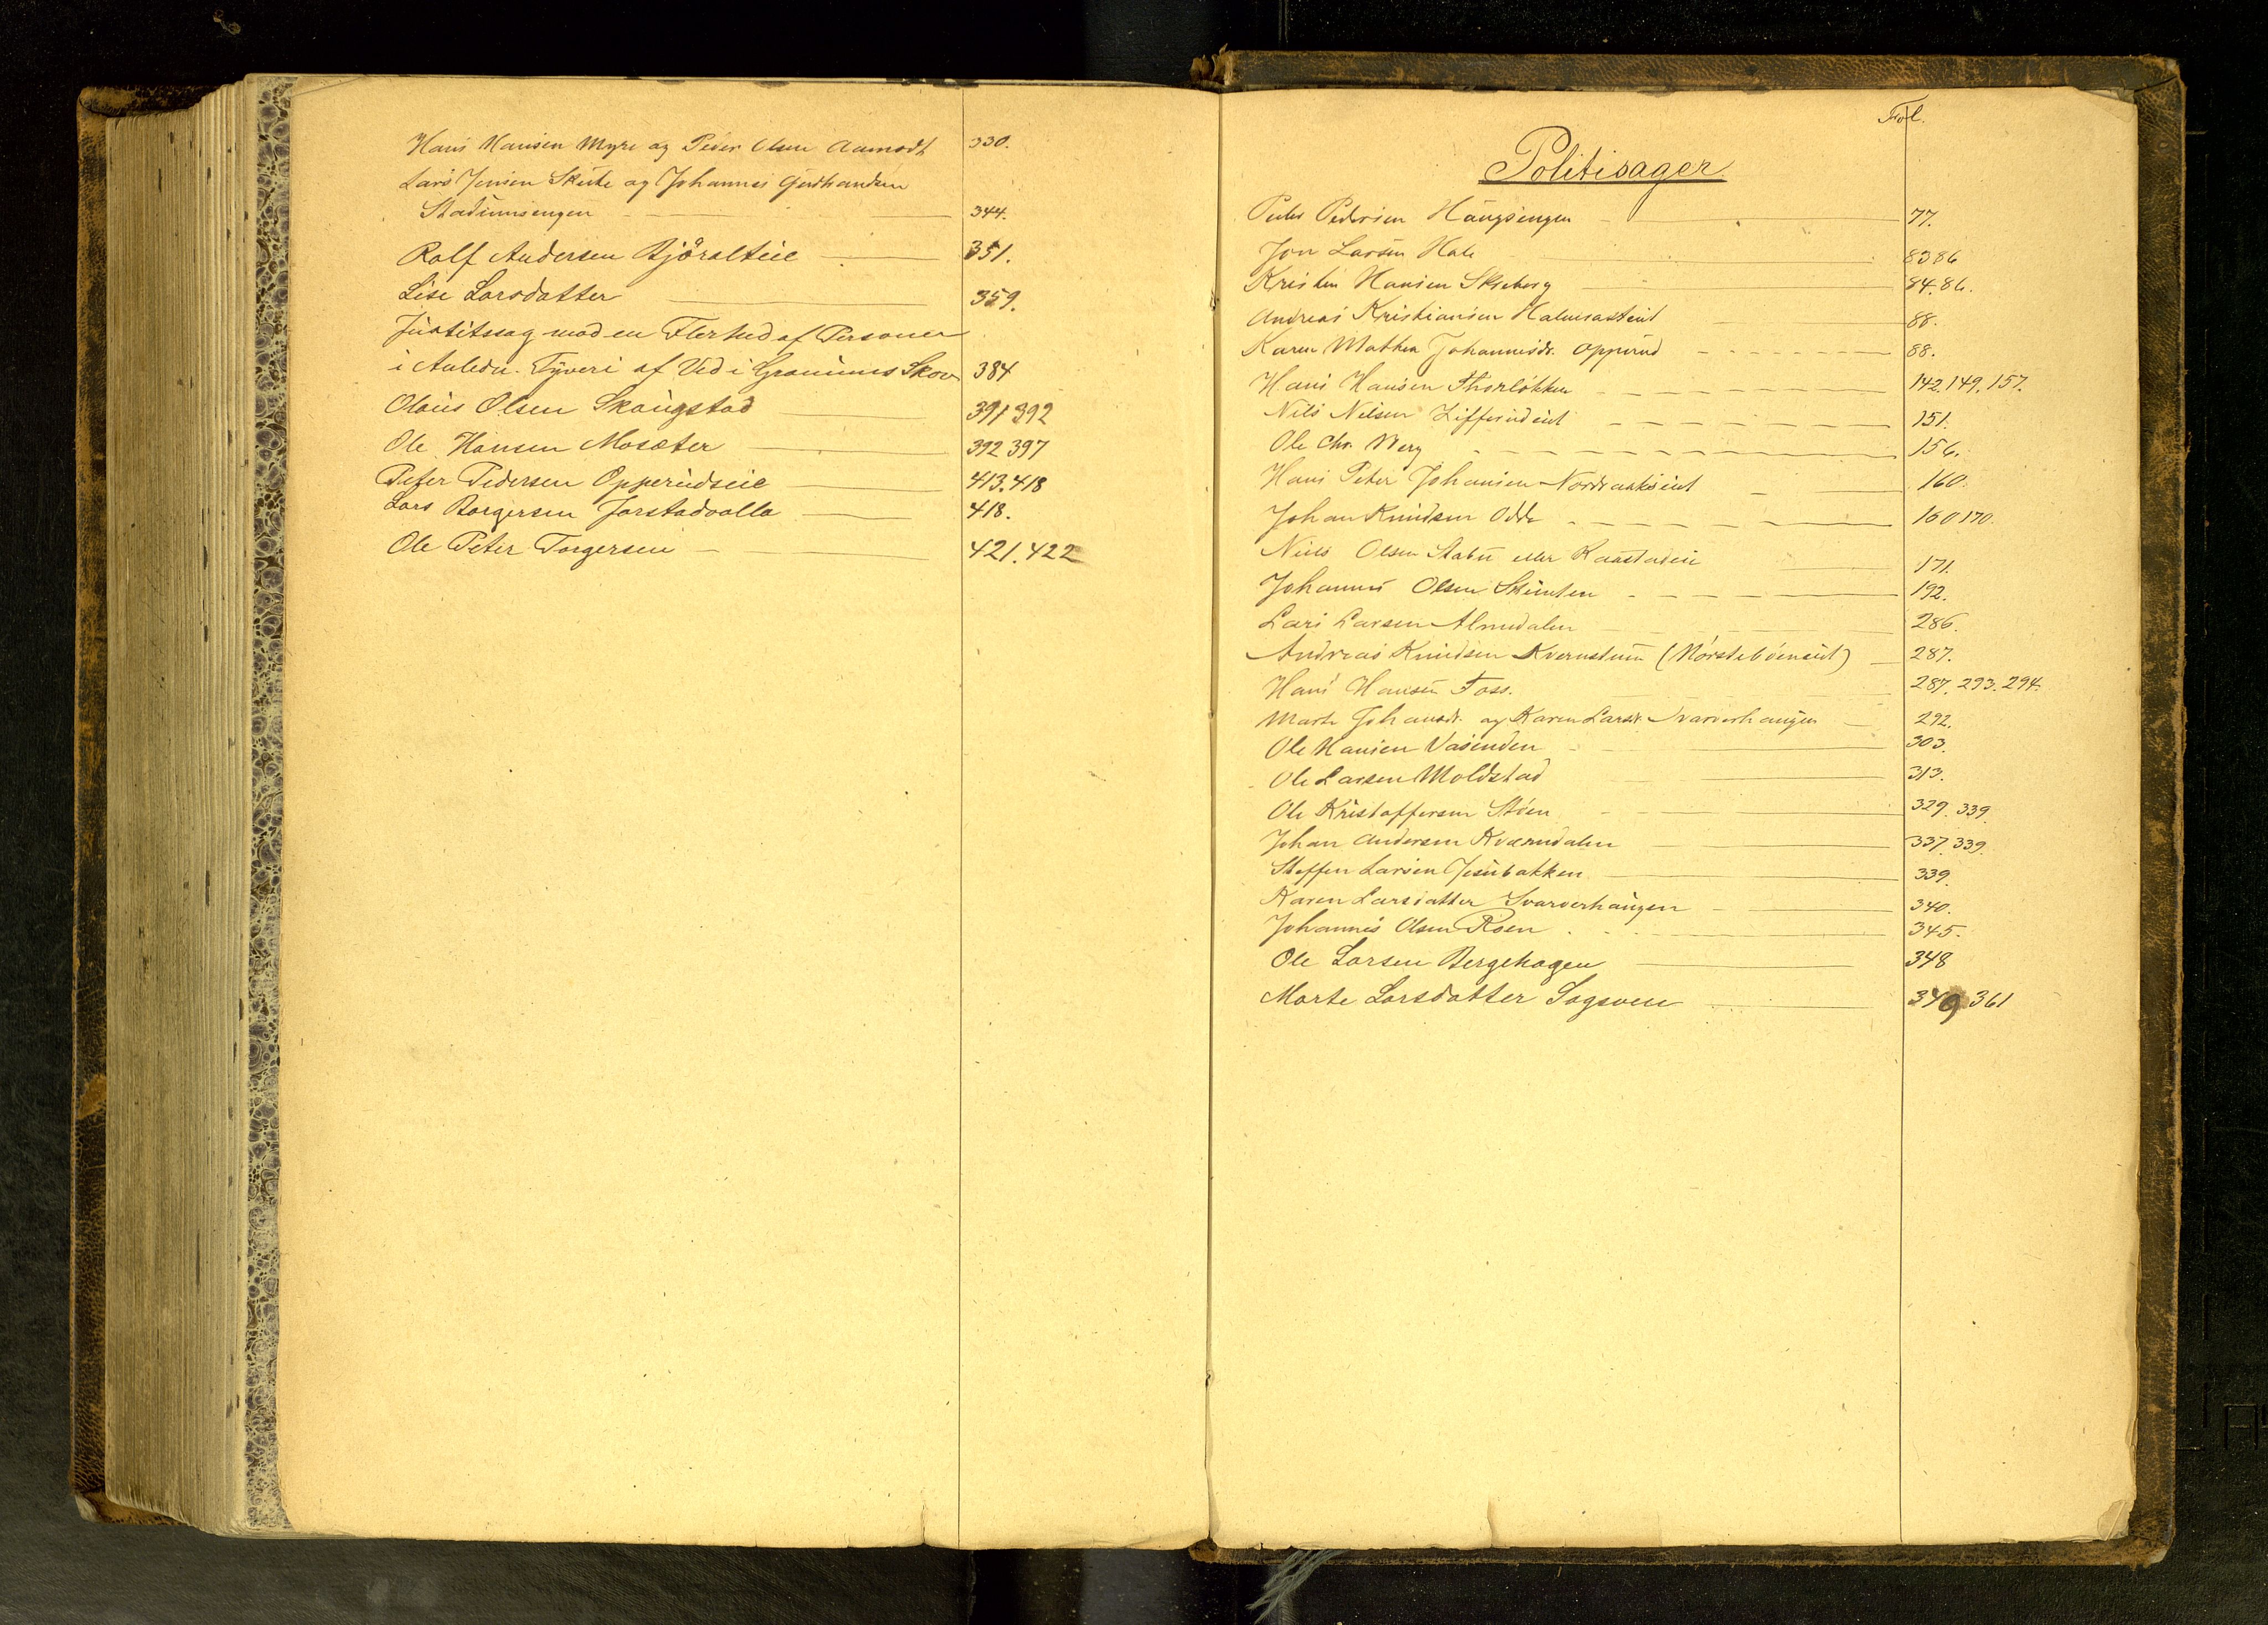 Hans Hansen Myre og Peder Olsen Aamodt 330.
Lars Jensen Skute og Johannes Gudbrandsen
Stadiumsengen 344.
Rolf Andersen Björalteie 351.
Lise Larsdatter 359.
Justitssag mod en Flerhed af Personer
i Anledn. Tyveri af Ved i Skov 384
Olaus Olsen Skaugstad 391 392
Ole Hansen Mosæter 392 397
Peter Pedersen Opperudseie 413.418
Lars Borgersen Jorstadvolla 418.
Ole Peter Torgersen 421.422
Fol.
Politisager
Peder Pedersen Haugsengen 77.
Jon Larsen Hole 83 86
Kristen Hansen Skreberg 84.86.
Andreas Kristiansen 88.
Karen Mathea Johannesdr. Opperud 88.
Hans Hansen Thorløkken 142.149.157.
Nils Nilsen 151.
Ole Chr. Berg 156.
Hans Peter Johansen 160.
Johan Knudsen Odde 160 170.
Niels Olsen Stabu eller 171.
Johannes Olsen 192.
Lars Larsen Almedalen 286.
Andreas Knudsen Kvernstuen 287.
Hans Hansen Foss. 287.293.294.
Marte Johansdr. og Karen Larsdr. Svarverhaugen 292.
Ole Hansen Vasenden 303.
Ole Larsen Moldstad 313.
Ole Kristoffersen Støen 329.339.
Johan Andersen Kværndalen 337.339.
Steffen Larsen 339.
Karen Larsdatter Svarverhaugen 340.
Johannes Olsen Roen 345.
Ole Larsen Bergehagen 348
Marte Larsdatter Sagsveen 349 361